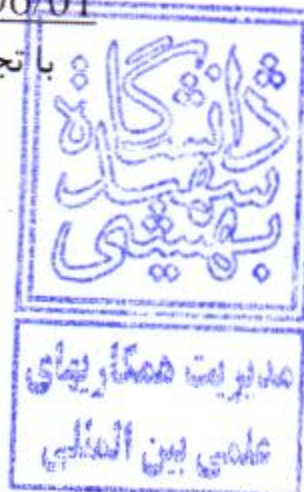 06/01
با تج
دانشگاه
شهید
بهشتی
مدیریت همکاریهای
علمی بین المللی